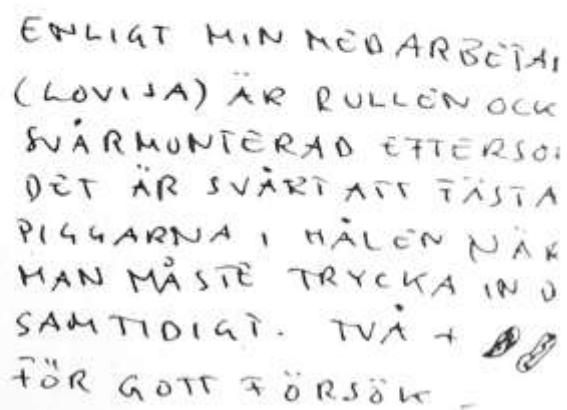 ENLIGT MIN MEDARBETAR
(LOVISA) ÄR RULLEN OCK
SVÅRMONTERAD EFTERSO
DET ÄR SVÅRT ATT FÄSTA
PIGGARNA I HÅLEN NÄR
MAN MÅSTE TRYCKA IN
SAMTIDIGT. TVÅ +
FÖR GOTT FÖRSÖK